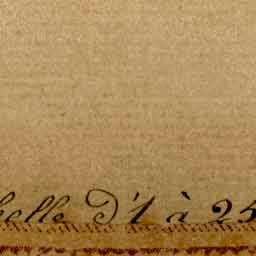 helle D'1 à 25